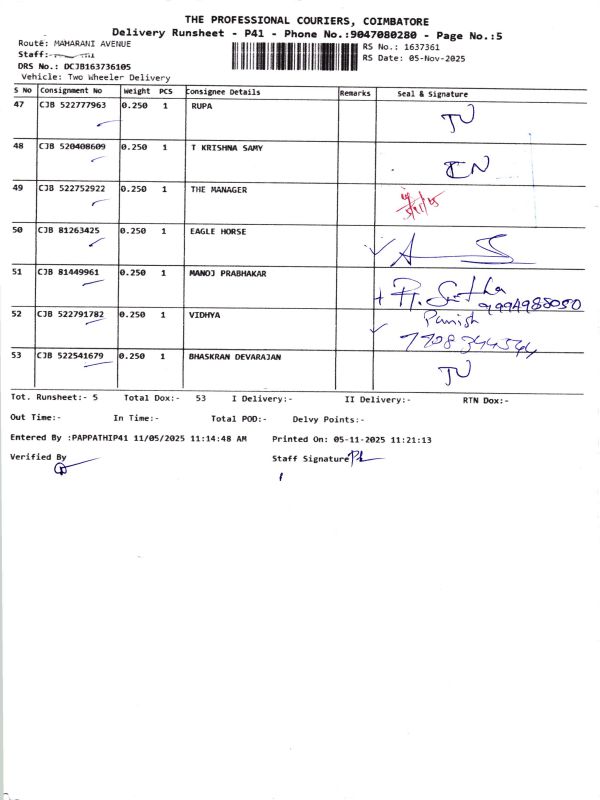 THE PROFESSIONAL COURIERS, COIMBATORE
Delivery Runsheet - P41 - Phone No.:9047080280 - Page No.:5
Route: MAHARANI AVENUE
RS No.: 1637361
Staff:-
RS Date: 05-Nov-2025
DRS No.: DCJB163736105
Vehicle: Two Wheeler Delivery
S No Consignment No Weight PCS Consignee Details Remarks Seal & Signature
47 CJB 522777963 0.250 1 RUPA
48 CJB 520408609 0.250 1 T KRISHNA SAMY
49 CJB 522752922 0.250 1 THE MANAGER
50 CJB 81263425 0.250 1 EAGLE HORSE
51 CJB 81449961 0.250 1 MANOJ PRABHAKAR
9994988050
52 CJB 522791782 0.250 1 VIDHYA
7708344544
53 CJB 522541679 0.250 1 BHASKRAN DEVARAJAN
Tot. Runsheet:- 5 Total Dox:- 53 I Delivery:- II Delivery:- RTN Dox:-
Out Time:- In Time:- Total POD:- Delvy Points:-
Entered By :PAPPATHIP41 11/05/2025 11:14:48 AM Printed On: 05-11-2025 11:21:13
Verified By Staff Signature